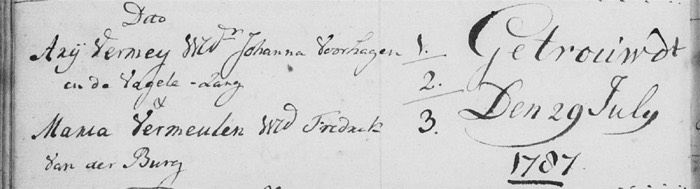 Dito
Arij Vermey Wdr Johanna Voorhagen
en de Vogele-Zang
&
Maria Vermeulen Wd Fredrik
Van der Burg
1.
2.
3.
Getrouwdt
Den 29 July
1787.